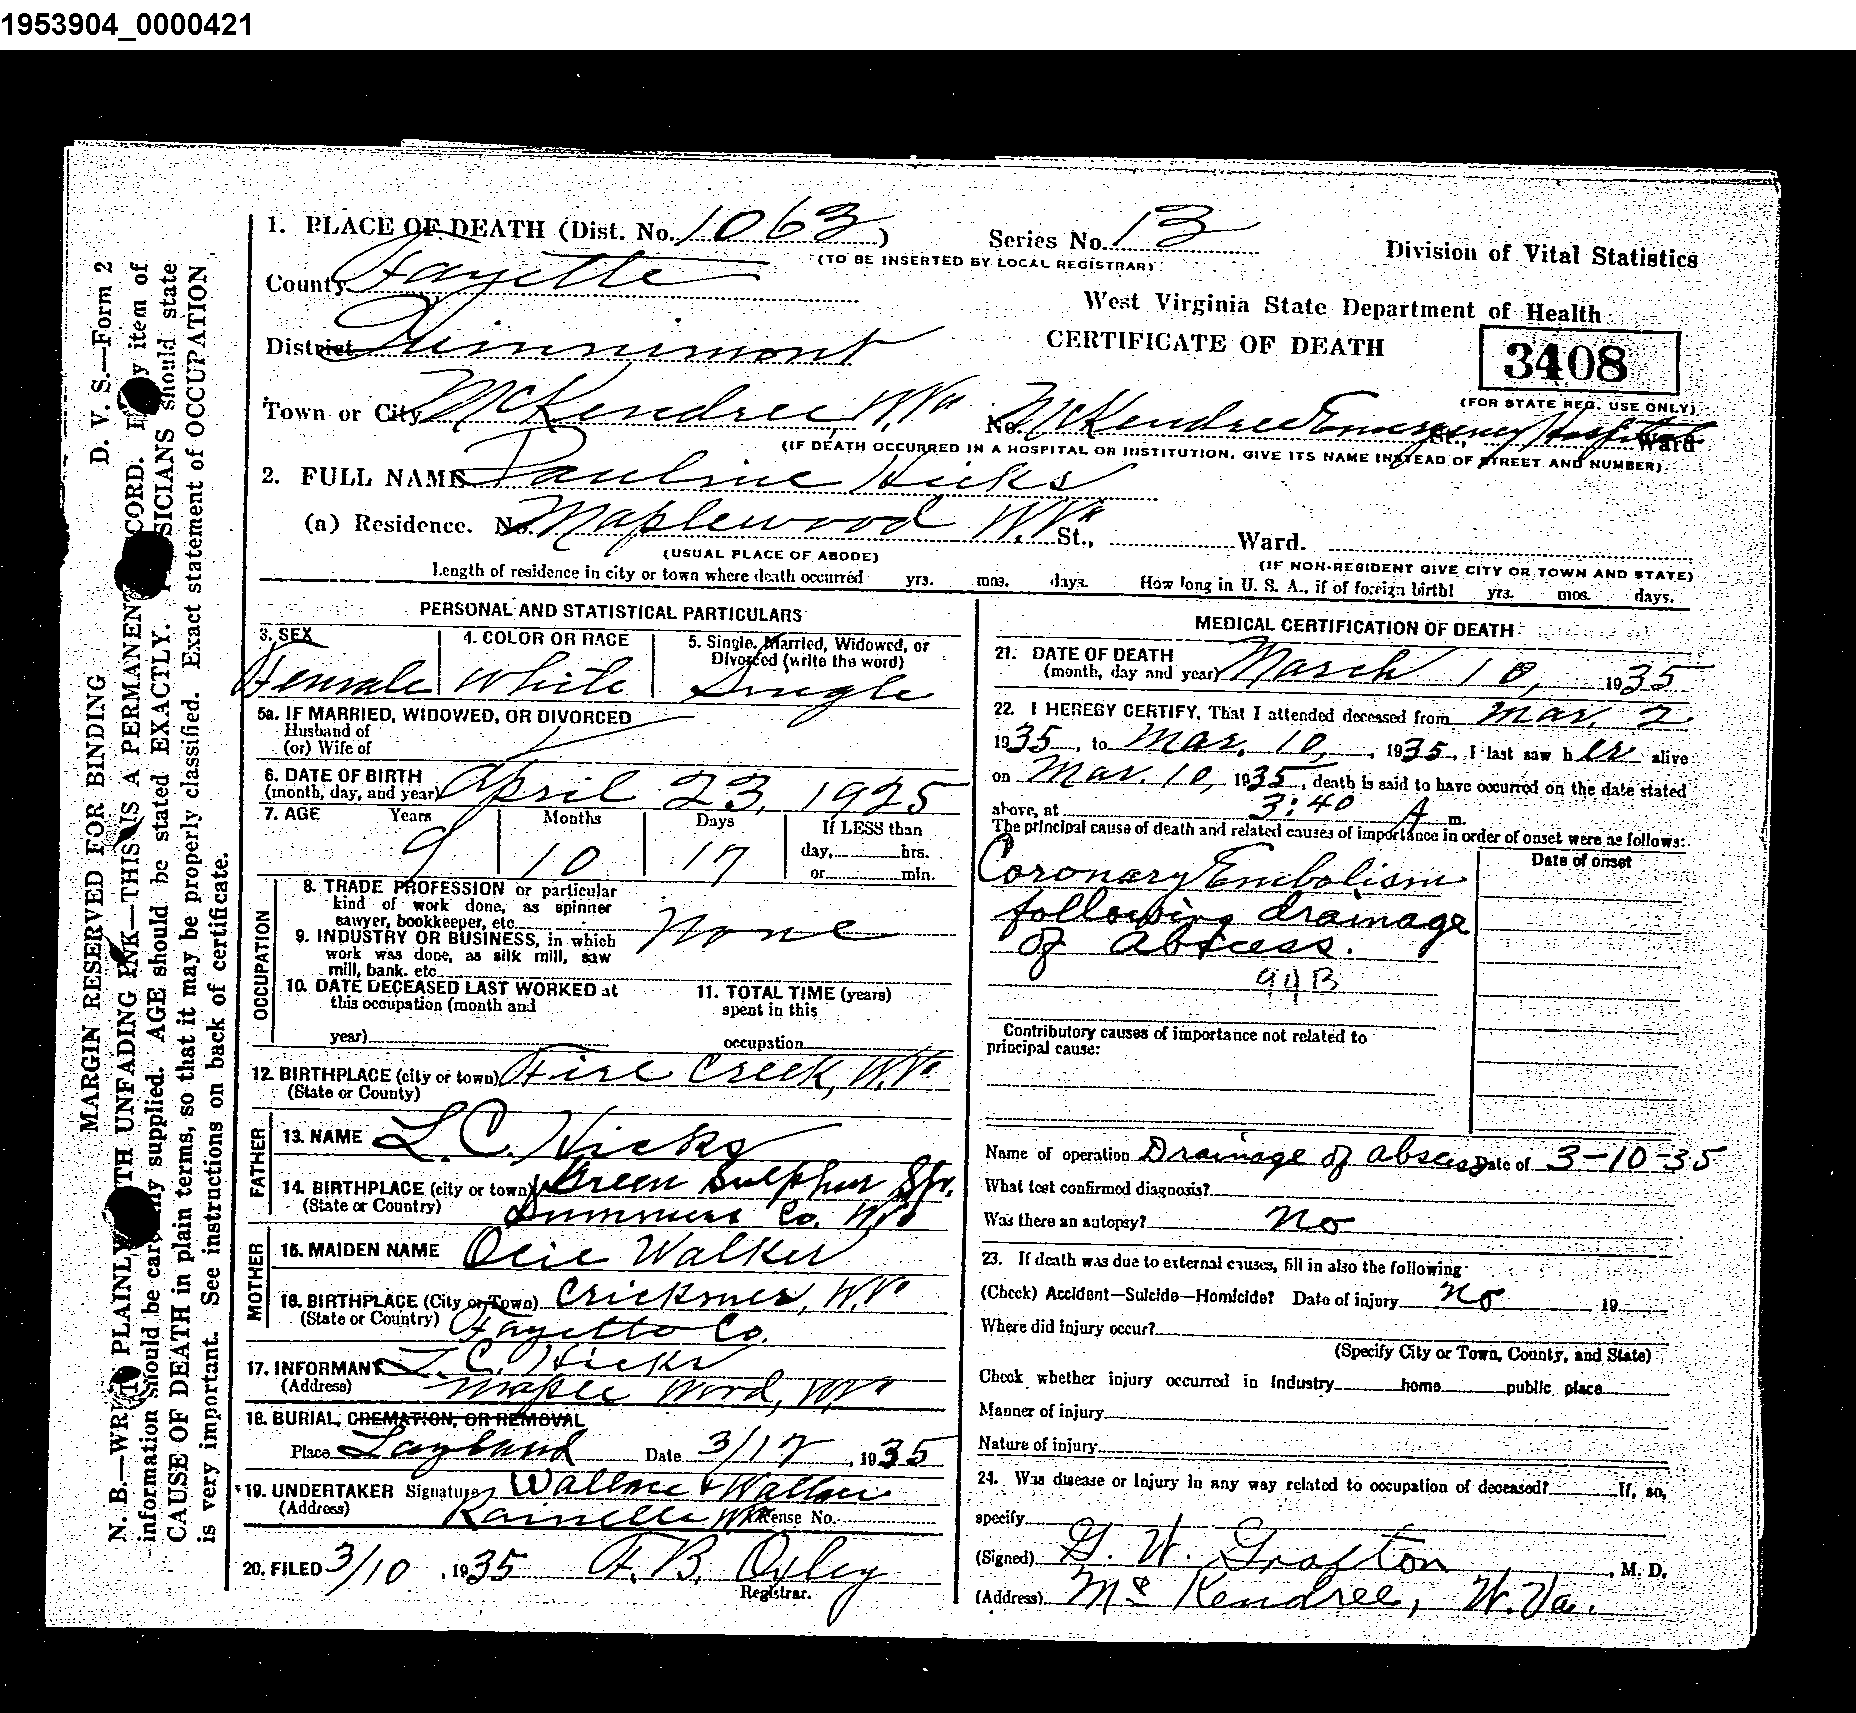 1953904_0000421
1. PLACE OF DEATH (Dist. No. 1063)
Series No. 13
Division of Vital Statistics
(TO BE INSERTED BY LOCAL REGISTRAR)
County Fayette
West Virginia State Department of Health
District Quinnimont
CERTIFICATE OF DEATH
3408
(FOR STATE REG. USE ONLY)
Town or City McKendree, W.Va No. McKendree Emergency Hospital St., Ward
(IF DEATH OCCURRED IN A HOSPITAL OR INSTITUTION, GIVE ITS NAME INSTEAD OF STREET AND NUMBER)
2. FULL NAME Pauline Hicks
(a) Residence. No. Maplewood W.Va St., Ward.
(USUAL PLACE OF ABODE)
(IF NON-RESIDENT GIVE CITY OR TOWN AND STATE)
Length of residence in city or town where death occurred yrs. mos. days. How long in U. S. A., if of foreign birth? yrs. mos. days.
PERSONAL AND STATISTICAL PARTICULARS
3. SEX 4. COLOR OR RACE 5. Single, Married, Widowed, or
Divorced (write the word)
Female White Single
5a. IF MARRIED, WIDOWED, OR DIVORCED
Husband of
(or) Wife of
6. DATE OF BIRTH
(month, day, and year) April 23, 1925
7. AGE Years Months Days If LESS than
9 10 17 day, hrs.
or min.
OCCUPATION
8. TRADE PROFESSION or particular
kind of work done, as spinner
sawyer, bookkeeper, etc.
None
9. INDUSTRY OR BUSINESS, in which
work was done, as silk mill, saw
mill, bank. etc
10. DATE DECEASED LAST WORKED at
this occupation (month and
year)
11. TOTAL TIME (years)
spent in this
occupation
12. BIRTHPLACE (city or town) Fire Creek, W.Va
(State or County)
FATHER
13. NAME L. C. Hicks
14. BIRTHPLACE (city or town) Green Sulphur Spr.
(State or Country) Summers Co. W.Va
MOTHER
15. MAIDEN NAME Ocie Walker
16. BIRTHPLACE (City or Town) Crickmer, W.Va
(State or Country) Fayette Co.
17. INFORMANT L. C. Hicks
(Address) Maple Wood, W.Va
18. BURIAL, CREMATION, OR REMOVAL
Place Layland Date 3/12, 1935
19. UNDERTAKER Signature Wallace & Wallace
(Address) Rainelle W.Va License No.
20. FILED 3/10, 1935 F. B. Oxley
Registrar.
MEDICAL CERTIFICATION OF DEATH
21. DATE OF DEATH
(month, day and year) March 10, 1935
22. I HEREBY CERTIFY, That I attended deceased from Mar. 2
1935, to Mar. 10, 1935. I last saw her alive
on Mar. 10, 1935, death is said to have occurred on the date stated
above, at 3:40 A m.
The principal cause of death and related causes of importance in order of onset were as follows:
Date of onset
Coronary Embolism
following drainage
of abscess.
94B
Contributory causes of importance not related to
principal cause:
Name of operation Drainage of abscess Date of 3-10-35
What test confirmed diagnosis?
Was there an autopsy? No
23. If death was due to external causes, fill in also the following
(Check) Accident—Suicide—Homicide? Date of injury No 19
Where did injury occur?
(Specify City or Town, County, and State)
Check whether injury occurred in industry home public place
Manner of injury
Nature of injury
24. Was disease or injury in any way related to occupation of deceased? If, so,
specify
(Signed) G. W. Grafton, M. D.
(Address) McKendree, W. Va.
D. V. S.—Form 2
MARGIN RESERVED FOR BINDING
N. B.—WRITE PLAINLY WITH UNFADING INK—THIS IS A PERMANENT RECORD. Every item of
information should be carefully supplied. AGE should be stated EXACTLY. PHYSICIANS should state
CAUSE OF DEATH in plain terms, so that it may be properly classified. Exact statement of OCCUPATION
is very important. See instructions on back of certificate.